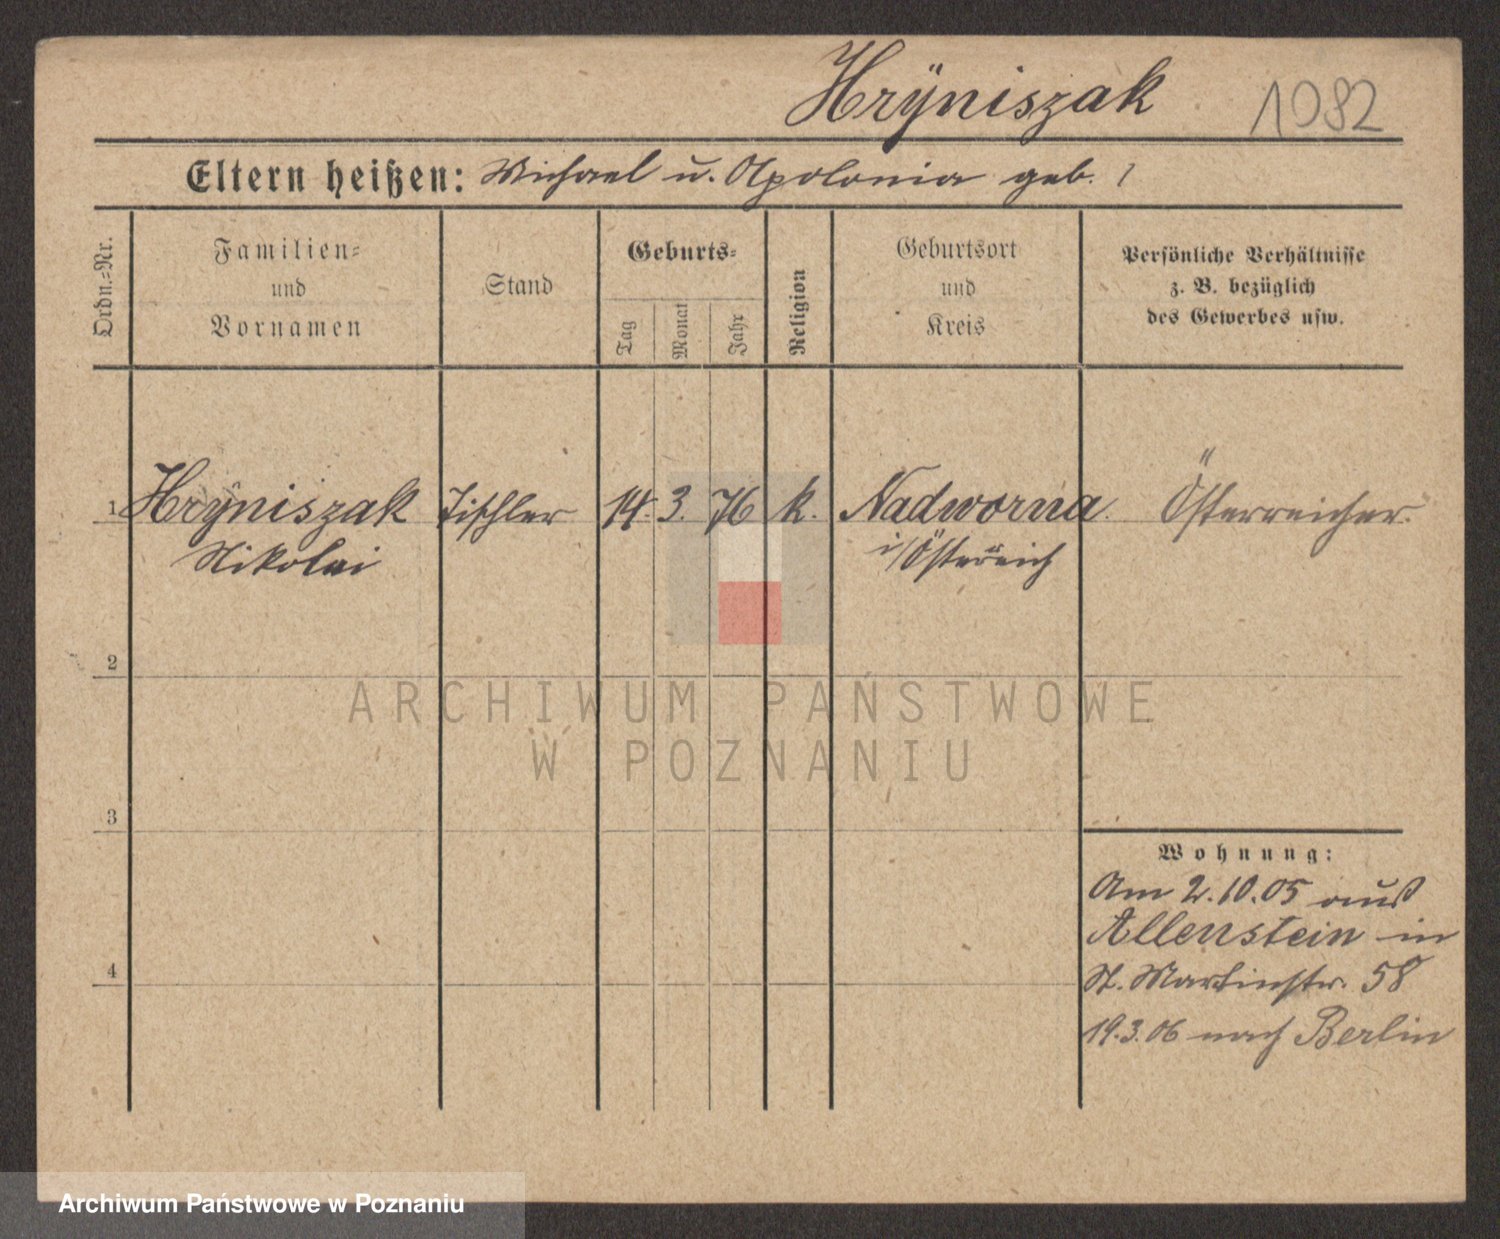 Hrÿniszak 1082
Eltern heißen: Michael u. Apolonia geb. ?
Ordn.-Nr.
Familien-
und
Vornamen
Stand
Geburts-
Tag
Monat
Jahr
Religion
Geburtsort
und
Kreis
Persönliche Verhältnisse
z. B. bezüglich
des Gewerbes usw.
1 Hrÿniszak Tischler 14. 3. 76 k. Nadworna Österreicher.
Nikolai i/Österreich
2
ARCHIWUM PAŃSTWOWE
W POZNANIU
3
Wohnung:
Am 2.10.05 aus
Allenstein in
St. Martinstr. 58
4
19.3.06 nach Berlin
Archiwum Państwowe w Poznaniu